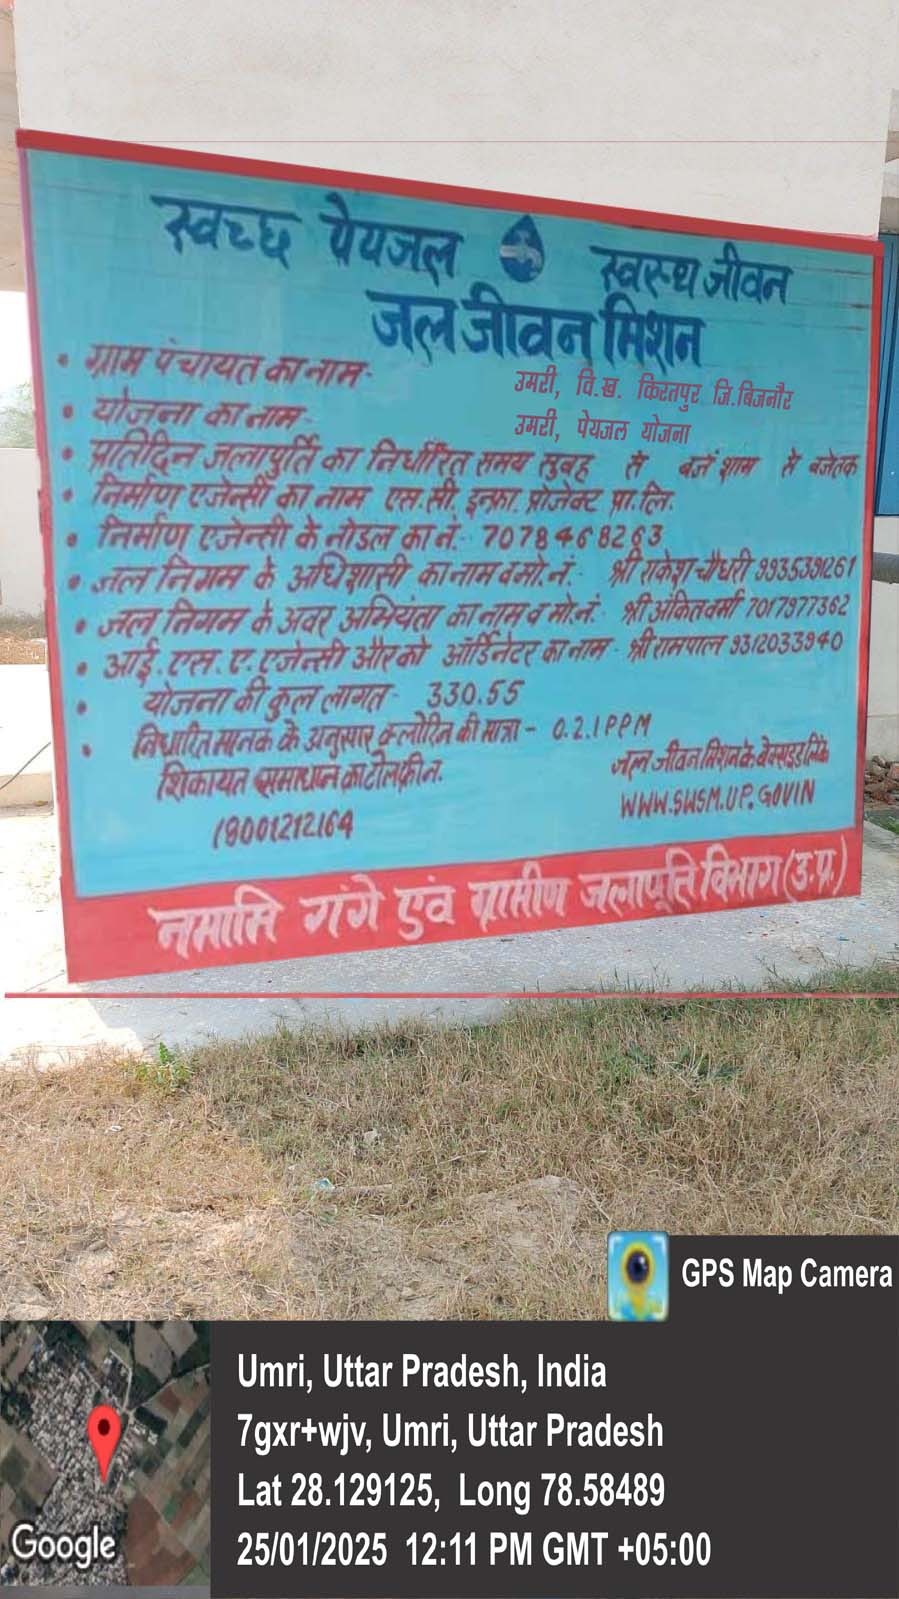 स्वच्छ पेयजल स्वस्थ जीवन
जल जीवन मिशन
• ग्राम पंचायत का नाम- उमरी, वि.ख. किरतपुर जि.बिजनौर
• योजना का नाम- उमरी, पेयजल योजना
• प्रतिदिन जलापुर्ति का निर्धारित समय सुबह से बजे शाम से बजेतक
• निर्माण एजेन्सी का नाम एस.सी. इन्फ्रा. प्रोजेक्ट प्रा.लि.
• निर्माण एजेन्सी के नोडल का नं.- 7078468263
• जल निगम के अधिशासी का नाम व मो.नं.- श्री राकेश चौधरी 9935391261
• जल निगम के अवर अभियंता का नाम व मो.नं. श्री अंकित वर्मा 7017977362
• आई.एस.ए.एजेन्सी और को ऑर्डिनेटर का नाम- श्री रामपाल 9312033940
• योजना की कुल लागत- 330.55
• निर्धारित मानक के अनुसार क्लोरिन की मात्रा- 0.2.1PPM
शिकायत समाधान का टोलफ्रीन. जल जीवन मिशन के वेक्साइड लिंक
18001212164 WWW.SWSM.UP.GOVIN
नमामि गंगे एवं ग्रामीण जलापूति विभाग (उ.प्र.)
GPS Map Camera
Umri, Uttar Pradesh, India
7gxr+wjv, Umri, Uttar Pradesh
Lat 28.129125, Long 78.58489
25/01/2025 12:11 PM GMT +05:00
Google